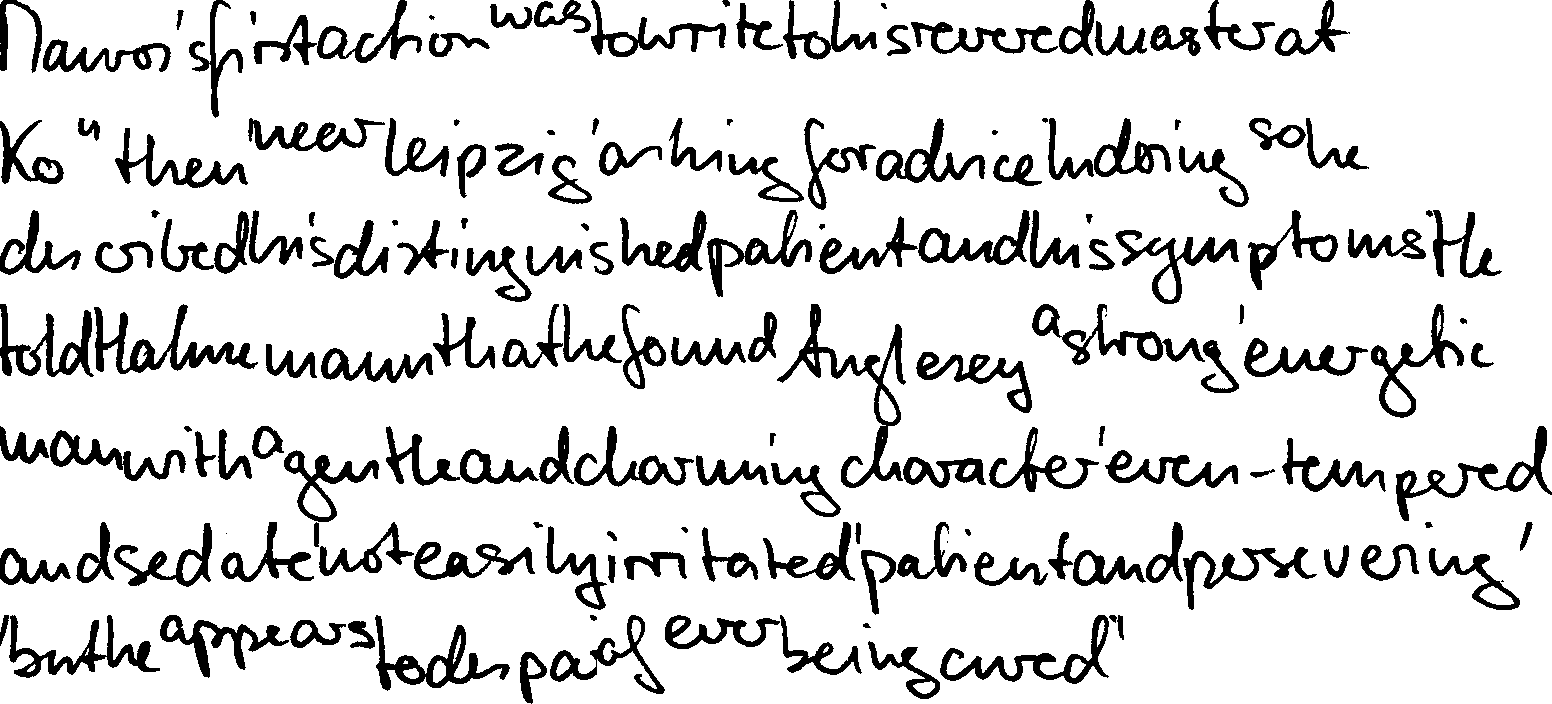 Mauro's first action was to write to his revered master at
Köthen near Leipzig, asking for advice. In doing so he
described his distinguished patient and his symptoms. He
told Hahnemann that he found Anglesey a strong, energetic
man with a gentle and charming character, even-tempered
and sedate, not easily irritated, "patient and persevering,
but he appears to despair of ever being cured"